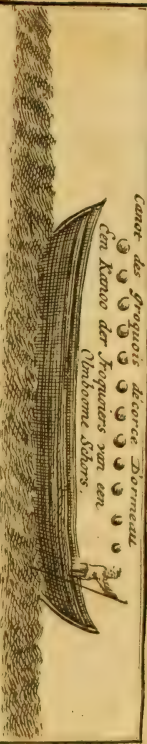 Canot des Iroquois d'écorce D'ormeau
Een Kanoo der Iroquoners van een
Olmboome Schors.